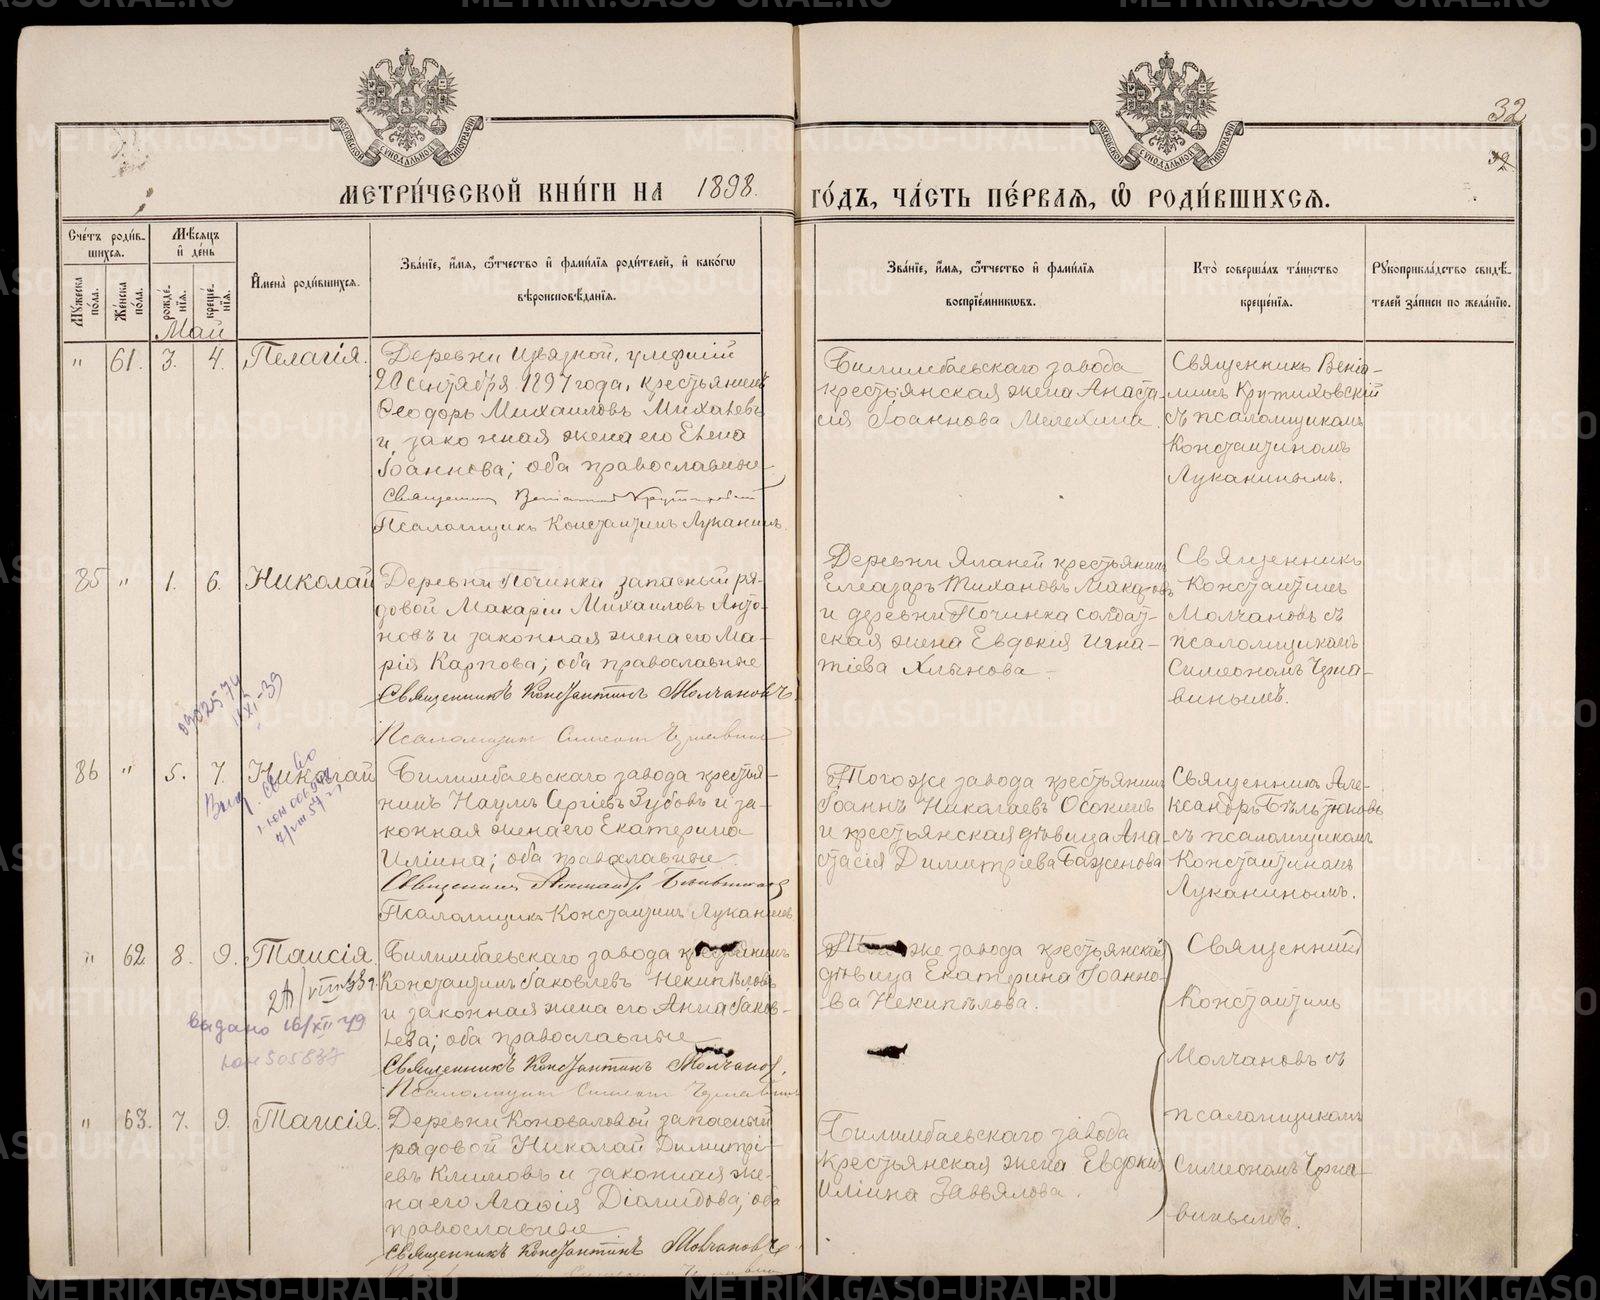 32
МОСКОВСКОЙ СѴНОДАЛЬНОЙ ТИПОГРАФІИ
МОСКОВСКОЙ СѴНОДАЛЬНОЙ ТИПОГРАФІИ
МЕТРИ́ЧЕСКОЙ КНИ́ГИ НА 1898. ГО́ДЪ, ЧА́СТЬ ПЕ́РВАЯ, Ѡ҆ РОДИ́ВШИХСЯ.
Сче́тъ роди́в-
шихся.
Му́жеска
по́ла.
Же́нска
по́ла.
Мѣ́сяцъ
и҆ де́нь
рожде́-
нїя.
креще́-
нїя.
И҆мена̀ роди́вшихся.
Зва́нїе, и҆́мя, ѻ҆́тчество и҆ фами́лїя роди́телей, и҆ како́гѡ
вѣроисповѣ́данїя.
Зва́нїе, и҆́мя, ѻ҆́тчество и҆ фами́лїя
воспрїе́мникѡвъ.
Кто̀ соверша́лъ та́инство
креще́нїя.
Рꙋкоприкла́дство свидѣ́-
телей за́писи по жела́нїю.
Май
" 61. 3. 4. Пелагія.
Деревни Извязной, умершій
20 сентября 1897 года, крестьянинъ
Ѳеодоръ Михаиловъ Михалевъ
и законная жена его Елена
Іоаннова; оба православные
Священник Вениамин Крутиховский
Псаломщикъ Константинъ Луканинъ.
Билимбаевскаго завода
крестьянская жена Анаста-
сія Іоаннова Мелехина.
Священникъ Веніа-
минъ Крутиховскій
съ псаломщикомъ
Константиномъ
Луканинымъ.
85 " 1. 6. Николай
Деревни Починка запасный ря-
довой Макарій Михаиловъ Анто-
новъ и законная жена его Ма-
рія Карпова; оба православные
Священникъ Константинъ Молчановъ
Псаломщик Симеон Чернавин
Деревни Яланей крестьянинъ
Елеазаръ Тихановъ Макаровъ
и деревни Починка солдат-
ская жена Евдокія Игна-
тіева Хлынова
Священникъ
Константинъ
Молчановъ съ
псаломщикомъ
Симеономъ Черна-
винымъ.
86 " 5. 7. Николай
Билимбаевскаго завода крестья-
нинъ Наумъ Сергіевъ Зубовъ и за-
конная жена его Екатерина
Иліина; оба православные.
Священникъ Александр
Псаломщикъ Константинъ Луканинъ
Того же завода крестьянинъ
Іоаннъ Николаевъ Осокинъ
и крестьянская дѣвица Ана-
стасія Димитріева Баженова
Священникъ Але-
ксандръ Бѣльтюковъ
съ псаломщикомъ
Константиномъ
Луканинымъ.
" 62 8. 9. Таисія.
Билимбаевскаго завода крестьянинъ
Константинъ Іаковлевъ Некипѣловъ
и законная жена его Анна Іаков-
лева; оба православные
Священникъ Константинъ Молчанов.
Псаломщик Симеон Чернавин
выдано 16/XII 49
Того же завода крестьянская
дѣвица Екатерина Іоанно-
ва Некипѣлова.
Священникъ
Константинъ
Молчановъ съ
псаломщикомъ
Симеономъ Черна-
винымъ.
" 63. 7. 9. Таисія.
Деревни Коноваловой запасный
рядовой Николай Димитрі-
евъ Климовъ и законная же-
на его Агафія Діомидова; оба
православные
Священникъ Константинъ Молчановъ
Билимбаевскаго завода
крестьянская жена Евдокія
Иліина Завьялова.
METRIKI.GASO-URAL.RU